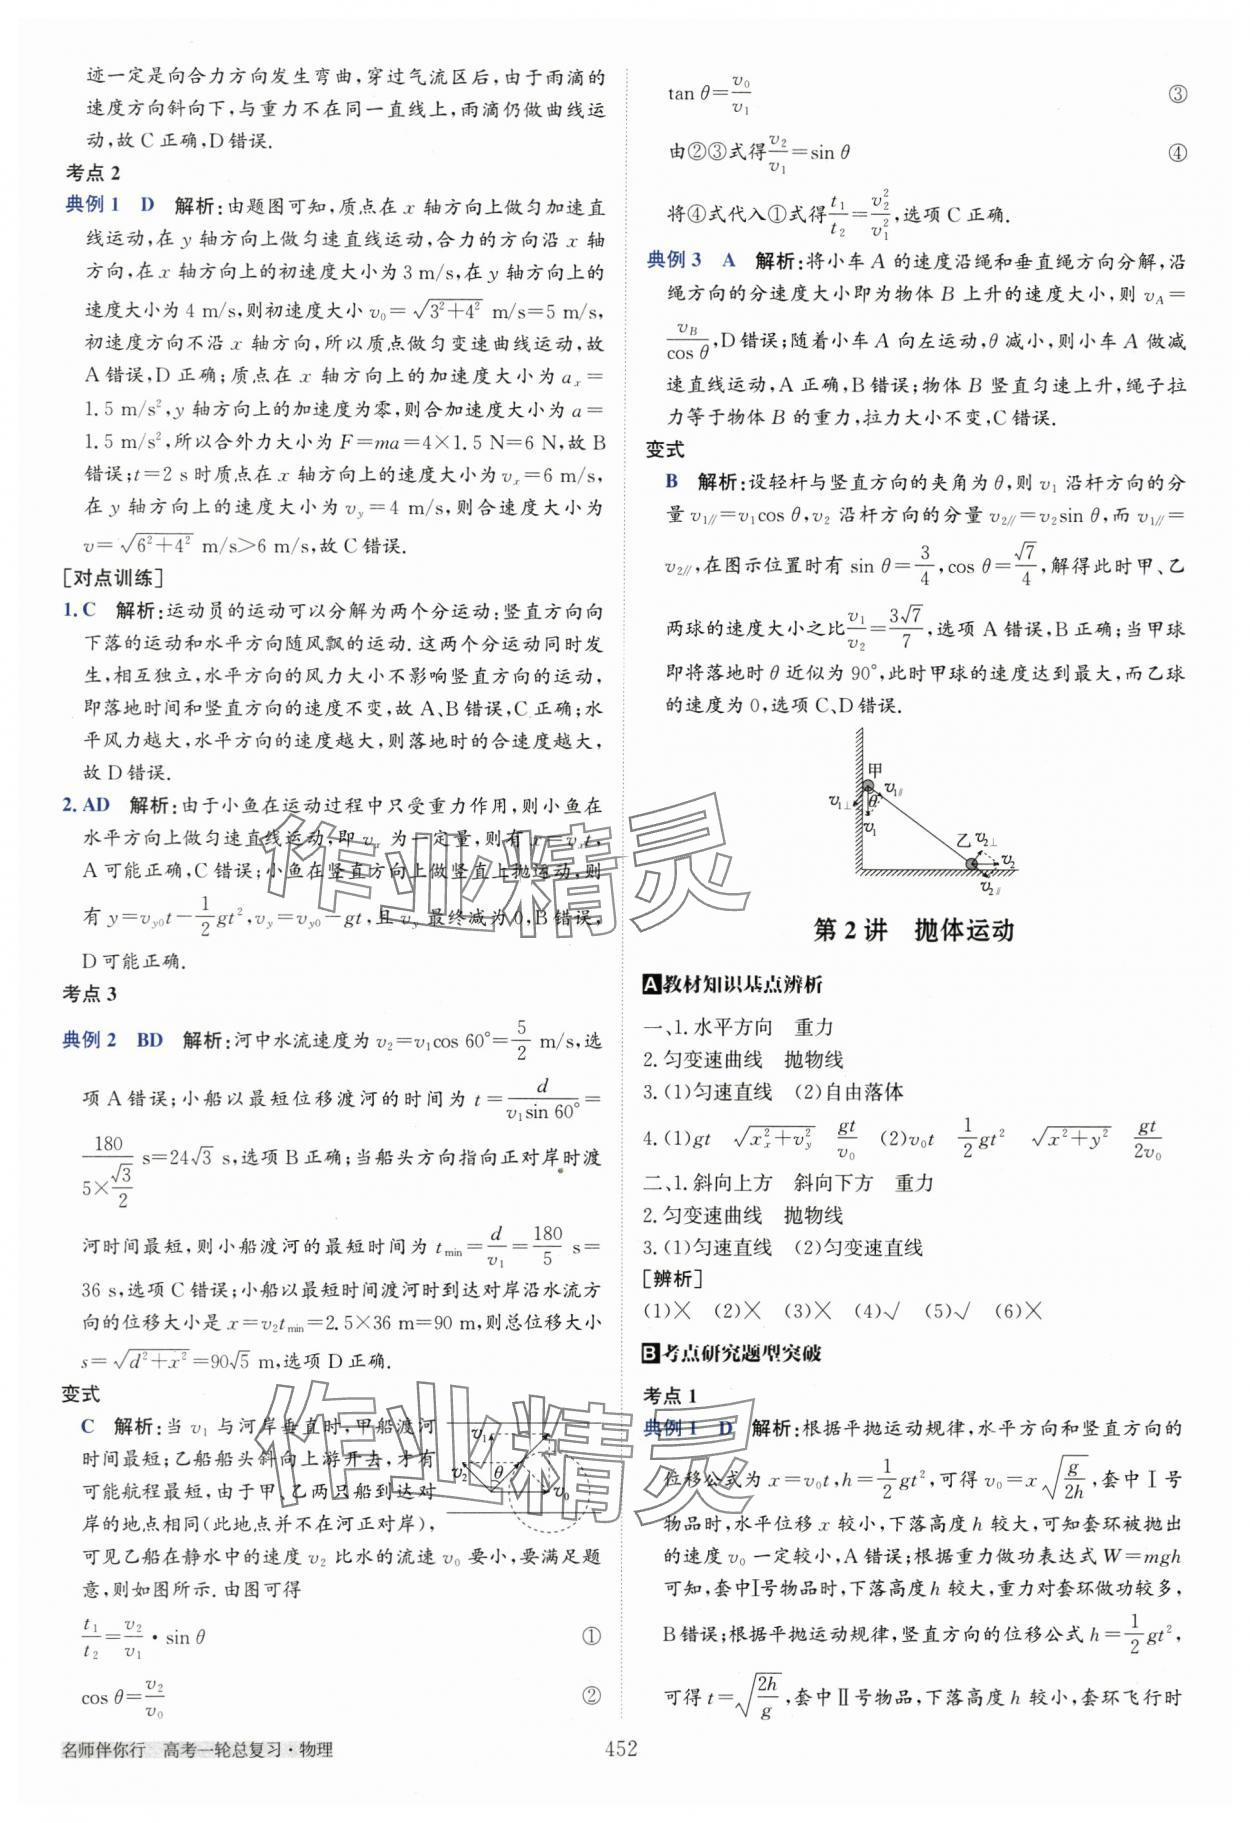 迹一定是向合力方向发生弯曲,穿过气流区后,由于雨滴的
速度方向斜向下,与重力不在同一直线上,雨滴仍做曲线运
动,故 C 正确,D 错误.
考点 2
典例 1 D 解析:由题图可知,质点在 x 轴方向上做匀加速直
线运动,在 y 轴方向上做匀速直线运动,合力的方向沿 x 轴
方向,在 x 轴方向上的初速度大小为 3 m/s,在 y 轴方向上的
速度大小为 4 m/s,则初速度大小 v₀=√(3²+4²) m/s=5 m/s,
初速度方向不沿 x 轴方向,所以质点做匀变速曲线运动,故
A 错误,D 正确;质点在 x 轴方向上的加速度大小为 aₓ=
1.5 m/s²,y 轴方向上的加速度为零,则合加速度大小为 a=
1.5 m/s²,所以合外力大小为 F=ma=4×1.5 N=6 N,故 B
错误;t=2 s 时质点在 x 轴方向上的速度大小为 vₓ=6 m/s,
在 y 轴方向上的速度大小为 v_y=4 m/s,则合速度大小为
v=√(6²+4²) m/s>6 m/s,故 C 错误.
[对点训练]
1.C 解析:运动员的运动可以分解为两个分运动:竖直方向向
下落的运动和水平方向随风飘的运动.这两个分运动同时发
生,相互独立,水平方向的风力大小不影响竖直方向的运动,
即落地时间和竖直方向的速度不变,故 A、B 错误,C 正确;水
平风力越大,水平方向的速度越大,则落地时的合速度越大,
故 D 错误.
2.AD 解析:由于小鱼在运动过程中只受重力作用,则小鱼在
水平方向上做匀速直线运动,即 vₓ 为一定量,则有 x=vₓt,
A 可能正确,C 错误;小鱼在竖直方向上做竖直上抛运动,则
有 y=v_y0 t-1/2 gt²,v_y=v_y0-gt,且 v_y 最终减为 0,B 错误,
D 可能正确.
考点 3
典例 2 BD 解析:河中水流速度为 v₂=v₁cos 60°=5/2 m/s,选
项 A 错误;小船以最短位移渡河的时间为 t=d/(v₁sin 60°)=
180/(5×√3/2) s=24√3 s,选项 B 正确;当船头方向指向正对岸时渡
河时间最短,则小船渡河的最短时间为 t_min=d/v₁=180/5 s=
36 s,选项 C 错误;小船以最短时间渡河时到达对岸沿水流方
向的位移大小是 x=v₂t_min=2.5×36 m=90 m,则总位移大小
s=√(d²+x²)=90√5 m,选项 D 正确.
变式
C 解析:当 v₁ 与河岸垂直时,甲船渡河
时间最短;乙船船头斜向上游开去,才有
可能航程最短,由于甲、乙两只船到达对
岸的地点相同(此地点并不在河正对岸),
v₁
v₂
θ
v₀
可见乙船在静水中的速度 v₂ 比水的流速 v₀ 要小,要满足题
意,则如图所示.由图可得
t₁/t₂=v₂/v₁·sin θ ①
cos θ=v₂/v₀ ②
tan θ=v₀/v₁ ③
由②③式得v₂/v₁=sin θ ④
将④式代入①式得t₁/t₂=v₂²/v₁²,选项 C 正确.
典例 3 A 解析:将小车 A 的速度沿绳和垂直绳方向分解,沿
绳方向的分速度大小即为物体 B 上升的速度大小,则 v_A=
v_B/cos θ,D 错误;随着小车 A 向左运动,θ 减小,则小车 A 做减
速直线运动,A 正确,B 错误;物体 B 竖直匀速上升,绳子拉
力等于物体 B 的重力,拉力大小不变,C 错误.
变式
B 解析:设轻杆与竖直方向的夹角为 θ,则 v₁ 沿杆方向的分
量 v₁∥=v₁cos θ,v₂ 沿杆方向的分量 v₂∥=v₂sin θ,而 v₁∥=
v₂∥,在图示位置时有 sin θ=3/4,cos θ=√7/4,解得此时甲、乙
两球的速度大小之比v₁/v₂=3√7/7,选项 A 错误,B 正确;当甲球
即将落地时 θ 近似为 90°,此时甲球的速度达到最大,而乙球
的速度为 0,选项 C、D 错误.
甲
v₁⊥
v₁∥
θ
v₁
乙
v₂⊥
v₂
v₂∥
第 2 讲 抛体运动
A 教材知识基点辨析
一、1.水平方向 重力
2.匀变速曲线 抛物线
3.(1)匀速直线 (2)自由落体
4.(1)gt √(vₓ²+v_y²) gt/v₀ (2)v₀t 1/2 gt² √(x²+y²) gt/2v₀
二、1.斜向上方 斜向下方 重力
2.匀变速曲线 抛物线
3.(1)匀速直线 (2)匀变速直线
[辨析]
(1)× (2)× (3)× (4)√ (5)√ (6)×
B 考点研究题型突破
考点 1
典例 1 D 解析:根据平抛运动规律,水平方向和竖直方向的
位移公式为 x=v₀t,h=1/2 gt²,可得 v₀=x√(g/2h),套中Ⅰ号
物品时,水平位移 x 较小,下落高度 h 较大,可知套环被抛出
的速度 v₀ 一定较小,A 错误;根据重力做功表达式 W=mgh
可知,套中Ⅰ号物品时,下落高度 h 较大,重力对套环做功较多,
B 错误;根据平抛运动规律,竖直方向的位移公式 h=1/2 gt²,
可得 t=√(2h/g),套中Ⅱ号物品,下落高度 h 较小,套环飞行时
名师伴你行 高考一轮总复习·物理
452
作业精灵
作业精灵